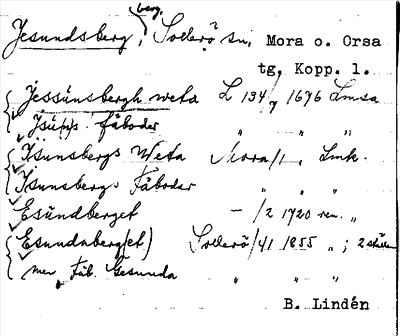 berg,
Jesundsberg, Sollerö sn, Mora o. Orsa
tg, Kopp. l.
Jessünsbergh weta L 134/7 1676 Lmsa
Jsü(n)s fäboder " " "
Isunsbergs Weta Mora/1, Lmk.
Isunsbergs Fäboder " " "
Esündberget - /2 1720 ren. "
Esundaberg(et) Sollerö/41 1855 " ; 2 ställen
mer Fäb. Gesunda " " "
B. Lindén